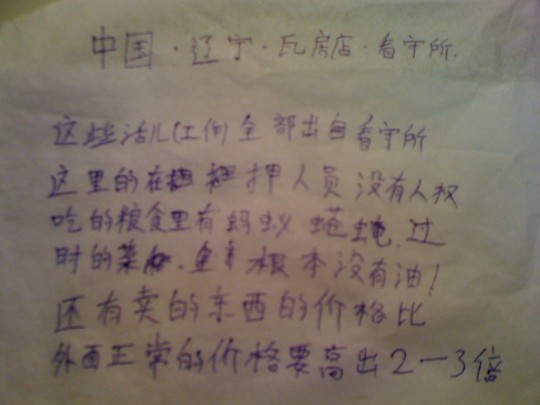 中国·辽宁·瓦房店·看守所.
这些活儿(工作)全部出自看守所
这里的在押人员没有人权
吃的粮食里有蚂蚁 过
时的菜 根本没有油!
还有卖的东西的价格比
外面正常的价格要高出2一3倍